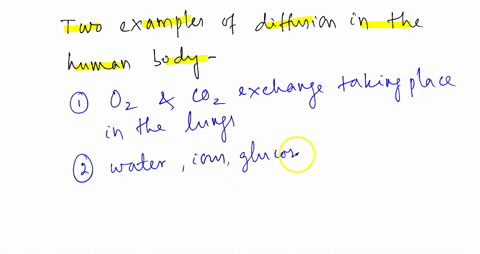 Two examples of diffusion in the
human body-
① O2 & CO2 exchange taking place
in the lungs
② water, ions, glucos